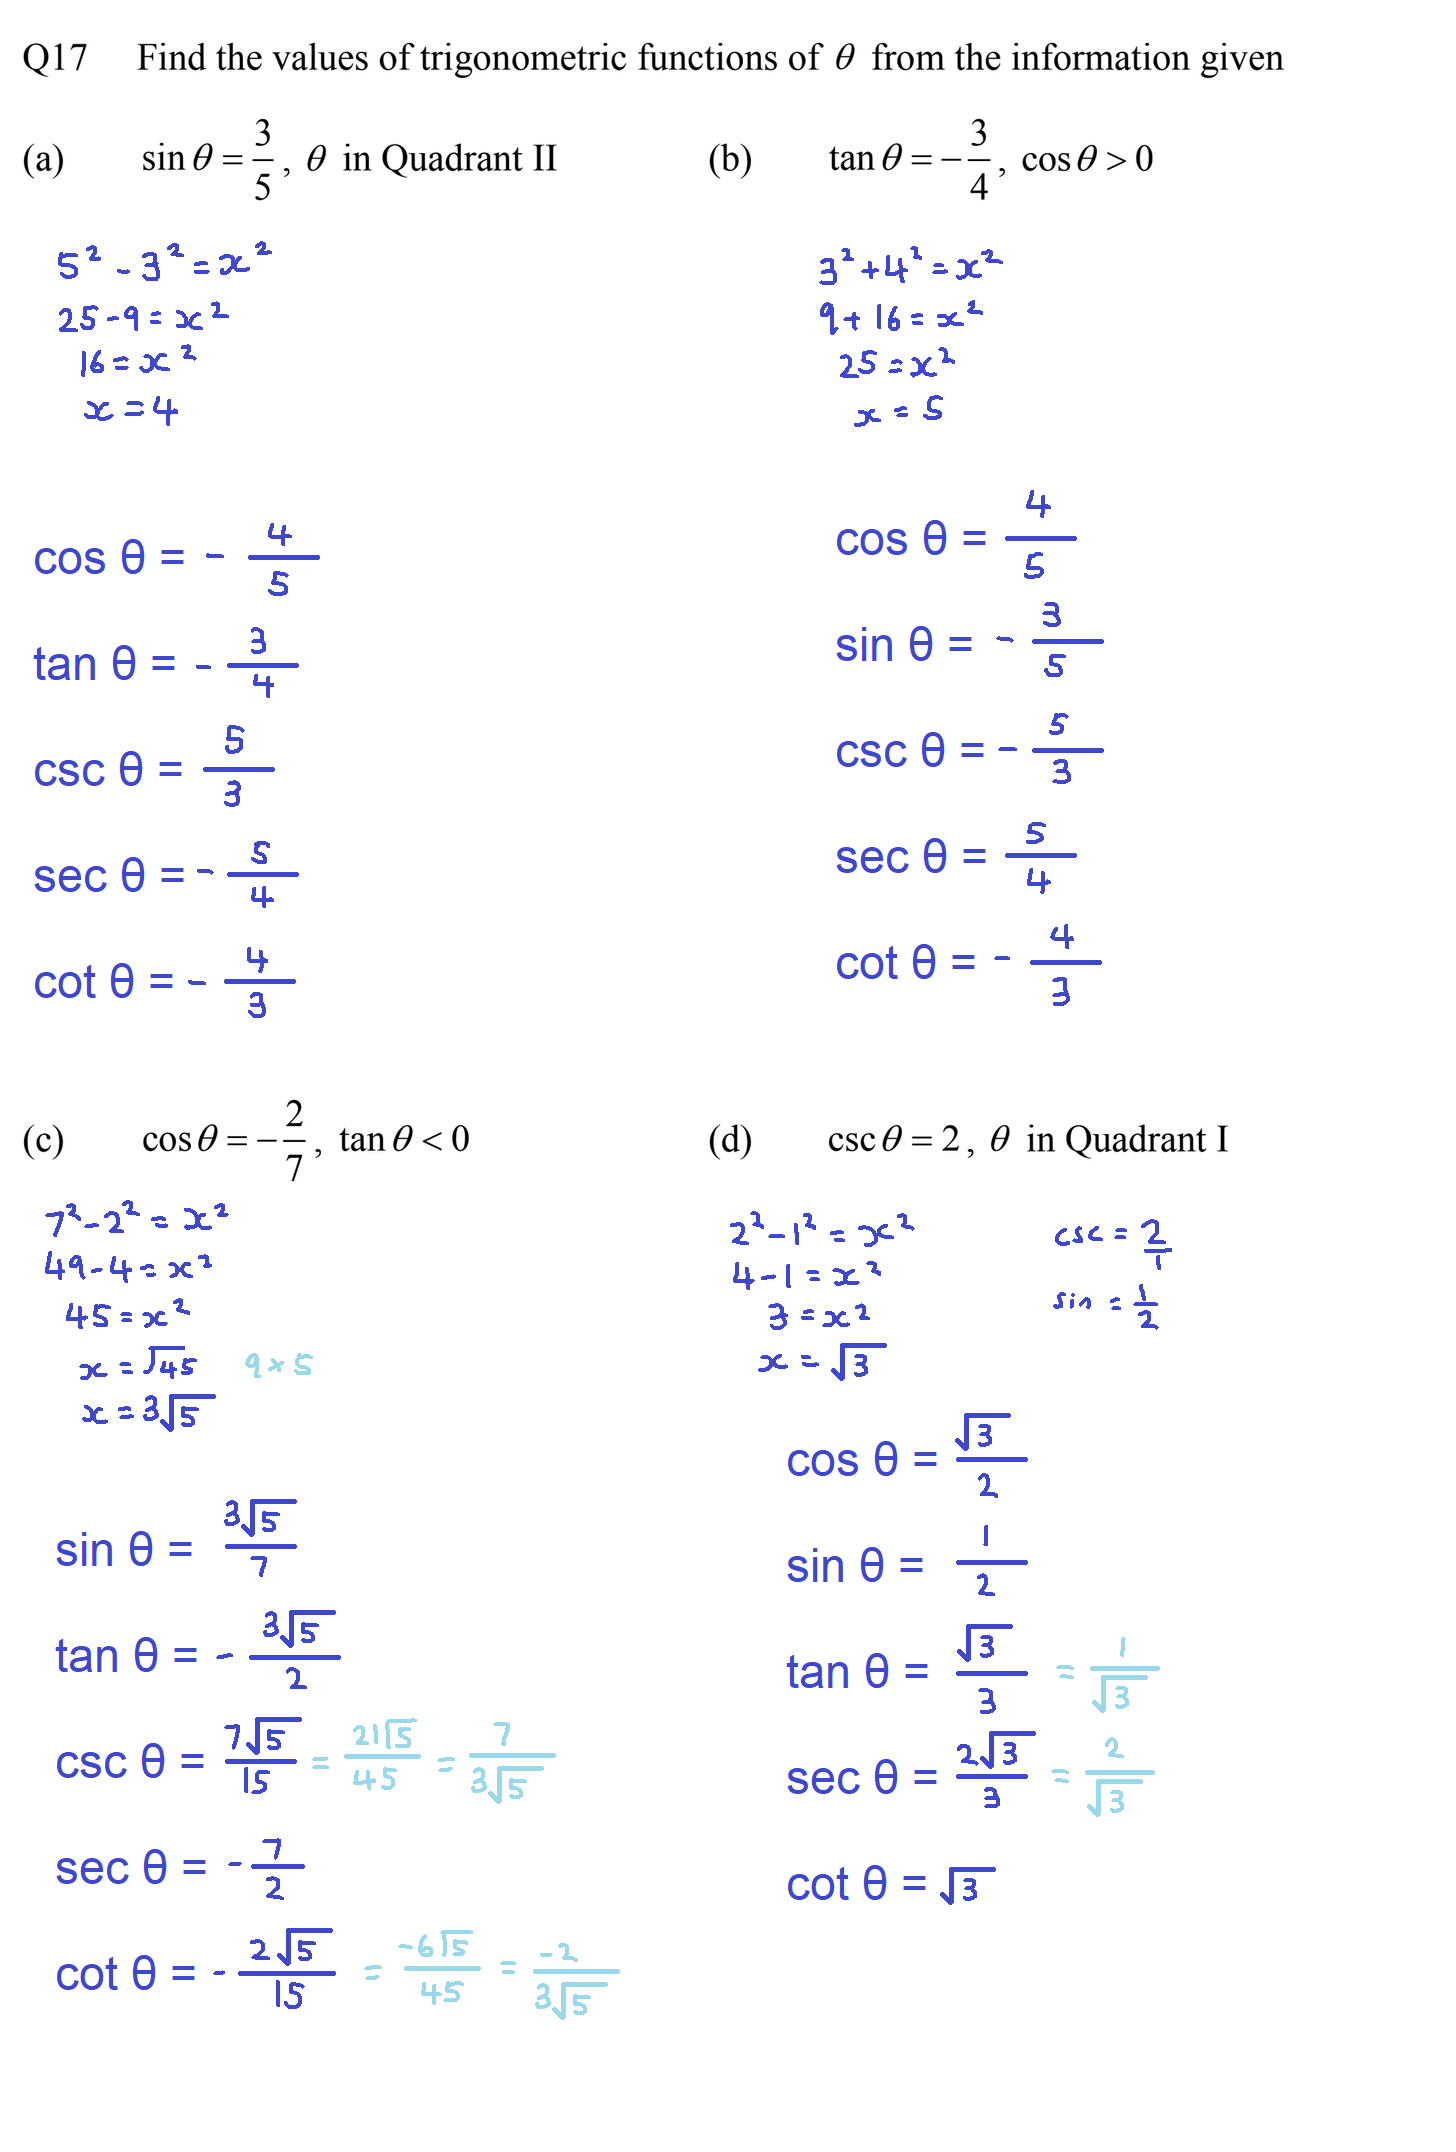 Q17 Find the values of trigonometric functions of θ from the information given
(a) sin θ = 3/5, θ in Quadrant II
5² - 3² = x²
25 - 9 = x²
16 = x²
x = 4
cos θ = - 4/5
tan θ = - 3/4
csc θ = 5/3
sec θ = - 5/4
cot θ = - 4/3
(b) tan θ = - 3/4, cos θ > 0
3² + 4² = x²
9 + 16 = x²
25 = x²
x = 5
cos θ = 4/5
sin θ = - 3/5
csc θ = - 5/3
sec θ = 5/4
cot θ = - 4/3
(c) cos θ = - 2/7, tan θ < 0
7² - 2² = x²
49 - 4 = x²
45 = x²
x = √45 9 × 5
x = 3√5
sin θ = 3√5/7
tan θ = - 3√5/2
csc θ = 7√5/15 = 21√5/45 = 7/3√5
sec θ = - 7/2
cot θ = - 2√5/15 = -6√5/45 = -2/3√5
(d) csc θ = 2, θ in Quadrant I
2² - 1² = x²
4 - 1 = x²
3 = x²
x = √3
csc = 2/1
sin = 1/2
cos θ = √3/2
sin θ = 1/2
tan θ = √3/3 = 1/√3
sec θ = 2√3/3 = 2/√3
cot θ = √3